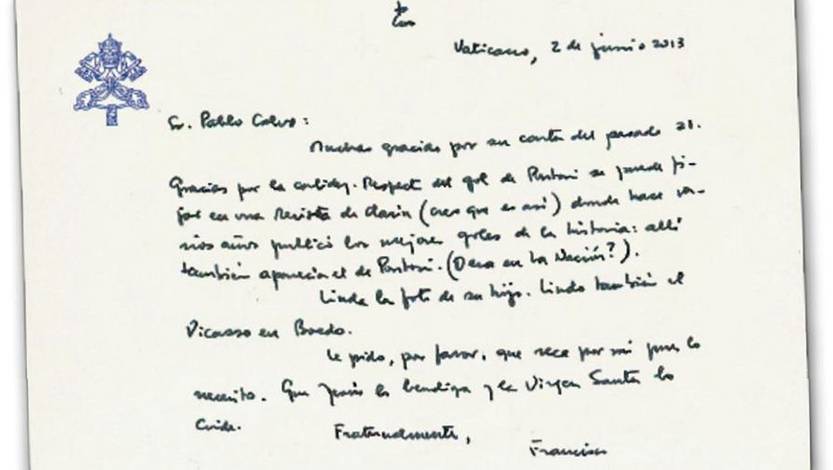 Vaticano, 2 de junio 2013
Sr. Pablo Calvo:
Muchas gracias por su carta del pasado 21.
Gracias por la calidez. Respecto del gol de Pontoni se puede fi-
jar en una Revista de Clarín (creo que es así) donde hace va-
rios años publicó los mejores goles de la historia: allí
también aparecía el de Pontoni. (O era en La Nación?).
Linda la foto de su hijo. Lindo también el
Vicasso en Boedo.
Le pido, por favor, que rece por mí pues lo
necesito. Que Jesús lo bendiga y la Virgen Santa lo
cuide.
Fraternalmente,
Francisco